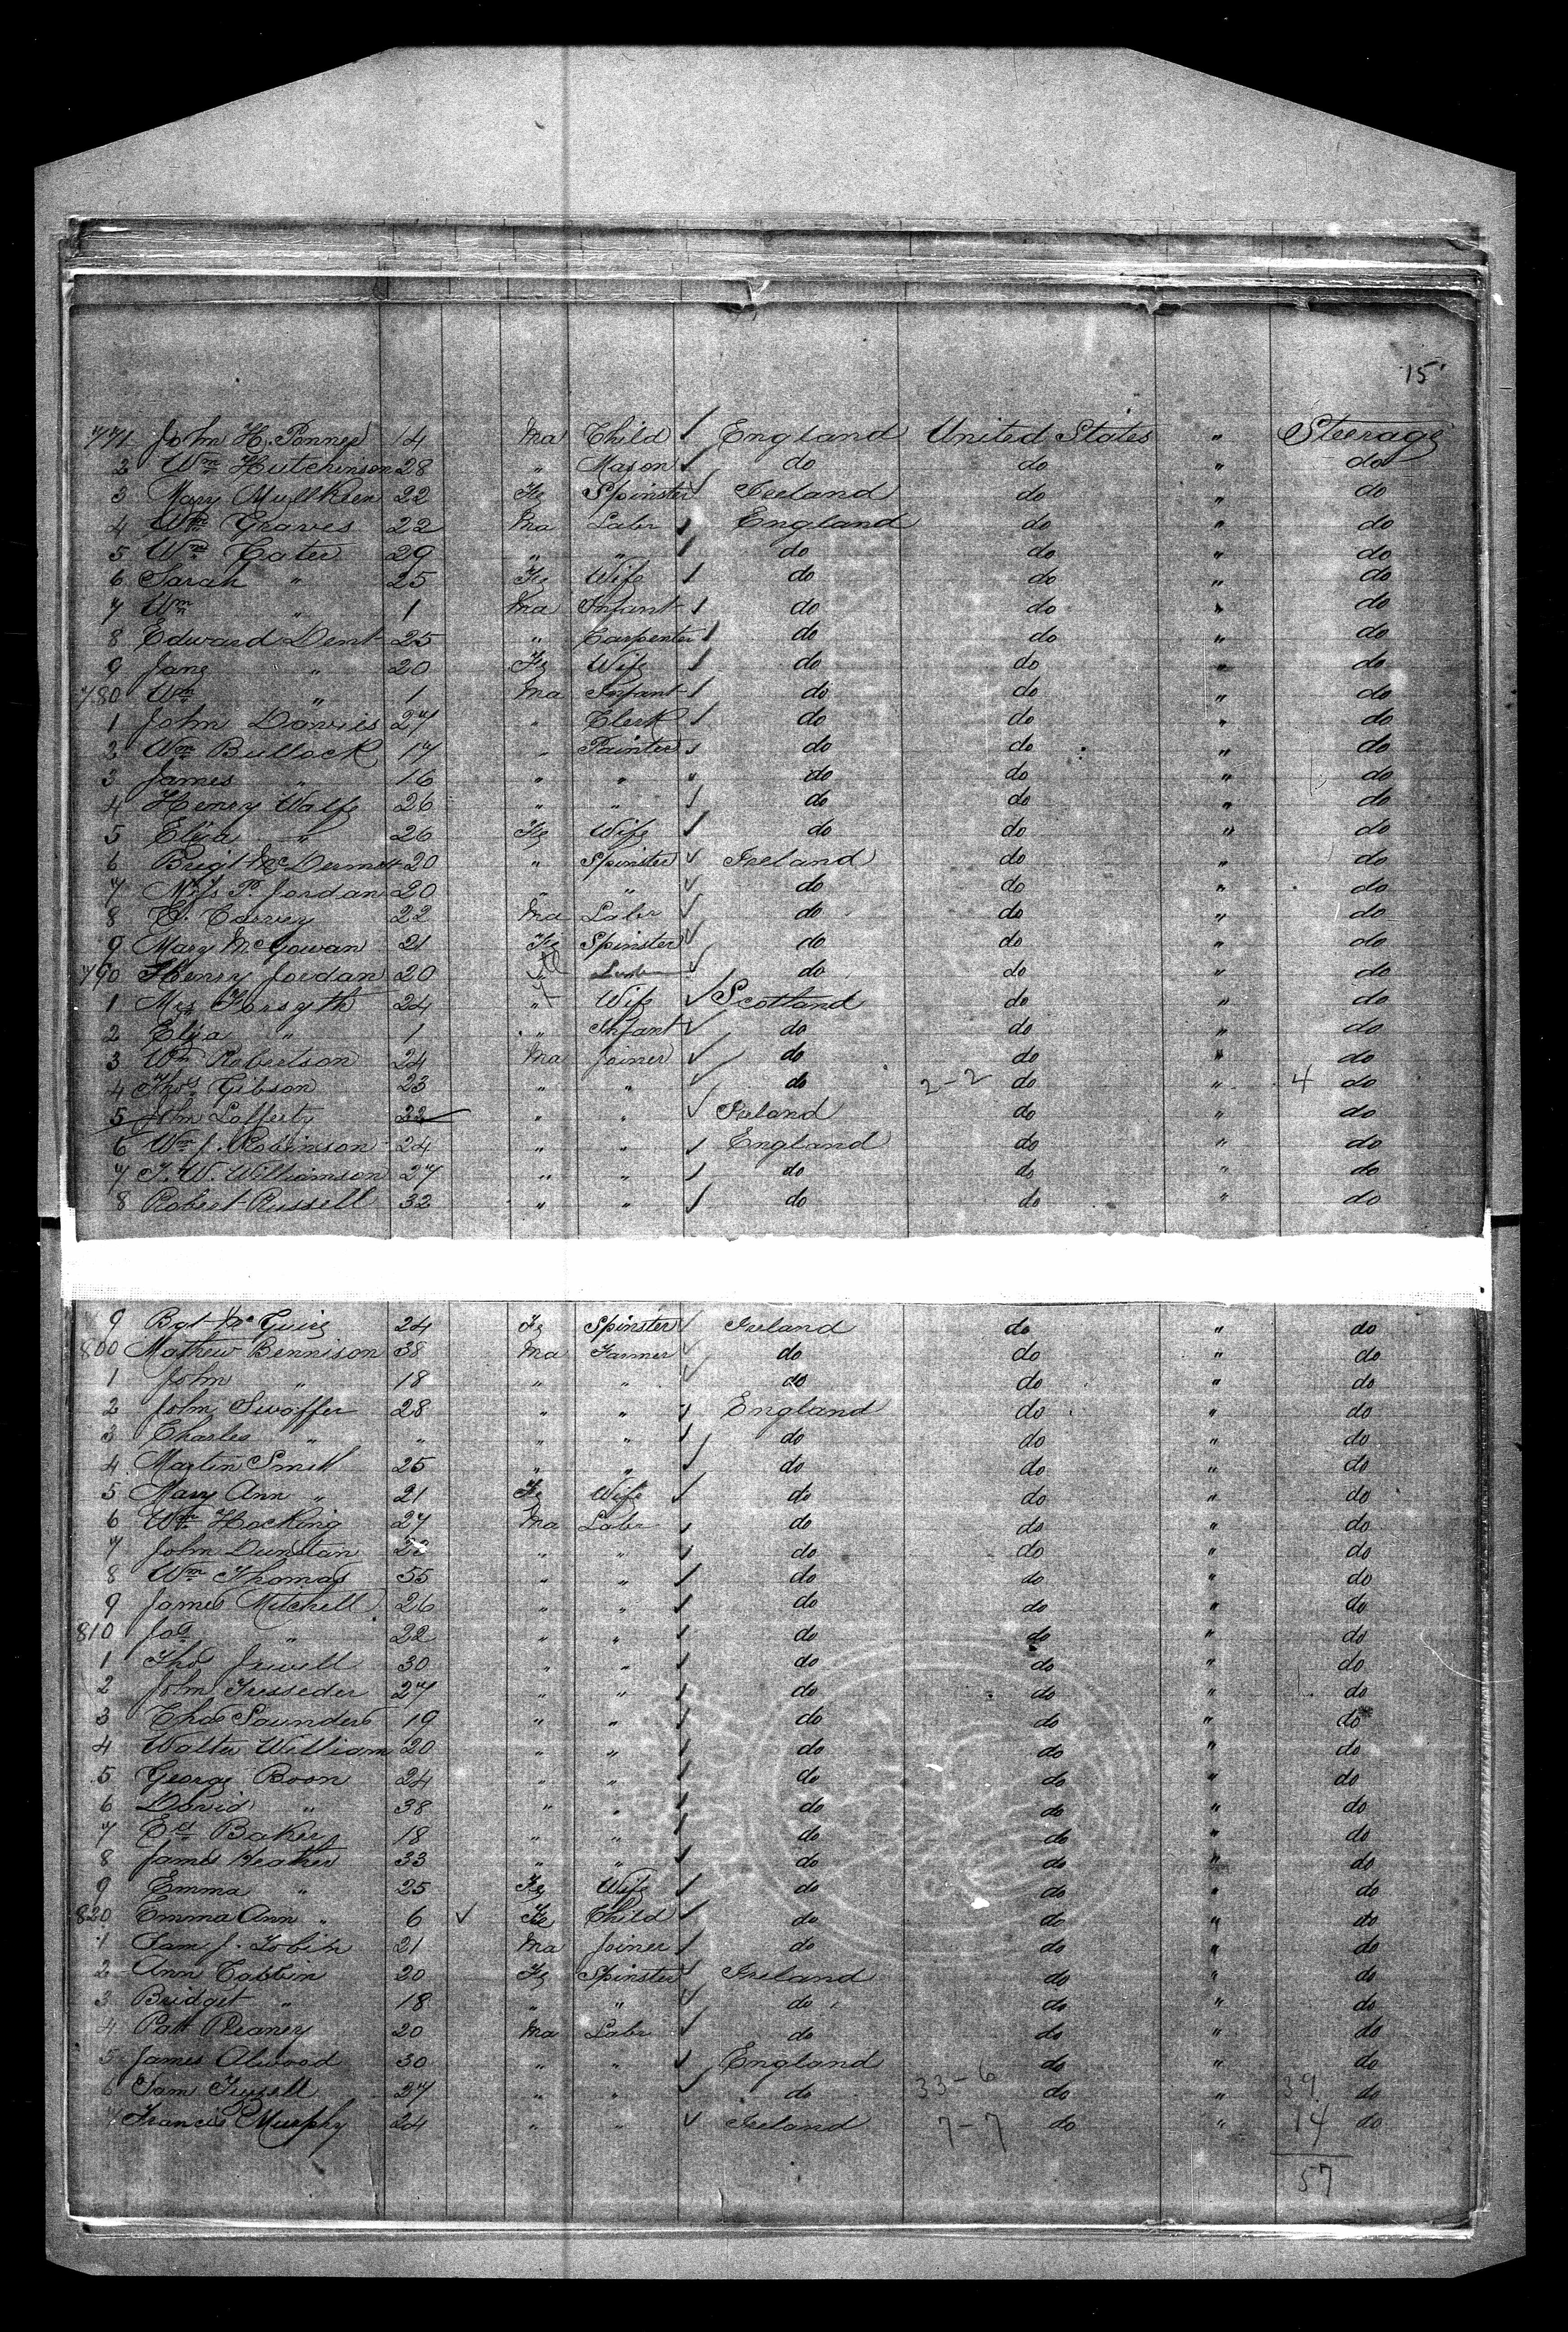 15
771 John H. Penner 14 Ma Child England United States " Steerage
2 Wm Hutchinson 28 " Mason do do " do
3 Mary Mullkeen 22 Fe Spinster Ireland do " do
4 Wm Graves 22 Ma Labr England do " do
5 Wm Cater 29 " " do do " do
6 Sarah " 25 Fe Wife do do " do
7 Wm " 1 Ma Infant do do " do
8 Edward Dent 25 " Carpenter do do " do
9 Jane " 20 Fe Wife do do " do
780 Wm " 1 Ma Infant do do " do
1 John Davies 27 " Clerk do do " do
2 Wm Bullock 17 " Painter do do " do
3 James " 16 " " " do do " do
4 Henry Wolfe 26 " " do do " do
5 Eliza " 26 Fe Wife do do " do
6 Brigt McDermott 20 " Spinster Ireland do " do
7 P. Jordan 20 " " do do " do
8 Carvey 22 Ma Labr do do " do
9 Mary McGowan 21 Fe Spinster do do " do
790 Henry Jordan 20 Lab do do " do
1 Mrs Forsyth 24 " Wife Scotland do " do
2 Eliza " 1 " Infant do do " do
3 Wm Robertson 24 Ma Joiner do do " do
4 Thos Gibson 23 " " do 2-2 do " 4 do
5 John Lafferty 22 " " Ireland do " do
6 Wm J. Robinson 24 " " England do " do
7 J. W. Williamson 27 " " do do " do
8 Robert Russell 32 " " do do " do
9 Bgt McGuire 24 Fe Spinster Ireland do " do
800 Mathew Bennison 38 Ma Farmer do do " do
1 John " 18 " " do do " do
2 John Swoffer 28 " " England do " do
3 Charles " " " " do do " do
4 Martin Smith 25 " " do do " do
5 Mary Ann " 21 Fe Wife do do " do
6 Wm Hocking 27 Ma Labr do do " do
7 John Dunstan " " do do " do
8 Wm Thomas 55 " " do do " do
9 James Mitchell 26 " " do do " do
810 Jos " 22 " " do do " do
1 Thos Jewell 30 " " do do " do
2 John Tresseder 27 " " do do " do
3 Chas Saunders 19 " " do do " do
4 Walter William 20 " " do do " do
5 George Boon 24 " " do do " do
6 David " 38 " " do do " do
7 Ed Baker 18 " " do do " do
8 James Heather 33 " " do do " do
9 Emma " 25 Fe Wife do do " do
820 Emma Ann " 6 Fe Child do do " do
1 Sam J. Tobin 21 Ma Joiner do do " do
2 Ann Cabbin 20 Fe Spinster Ireland do " do
3 Bridget " 18 " " do do " do
4 Patt Reaney 20 Ma Labr do do " do
5 James Alwood 30 " " England do " do
6 Sam 27 " " do 33-6 do " 39 do
7 Francis Murphy 24 " " Ireland 7-7 do " 14 do
57